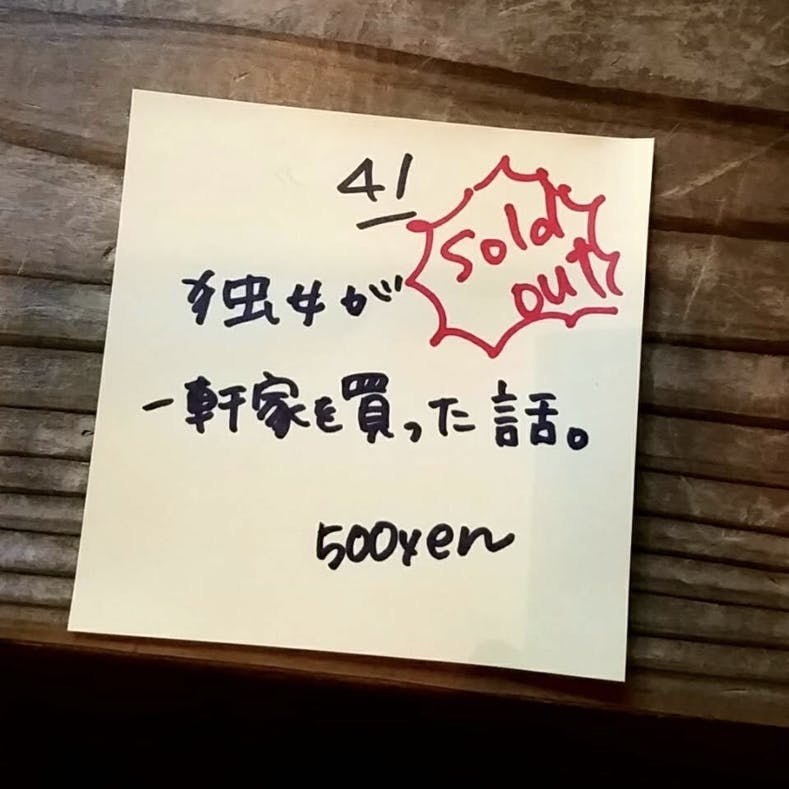 41
sold
out
独女が
一軒家を買った話。
500yen